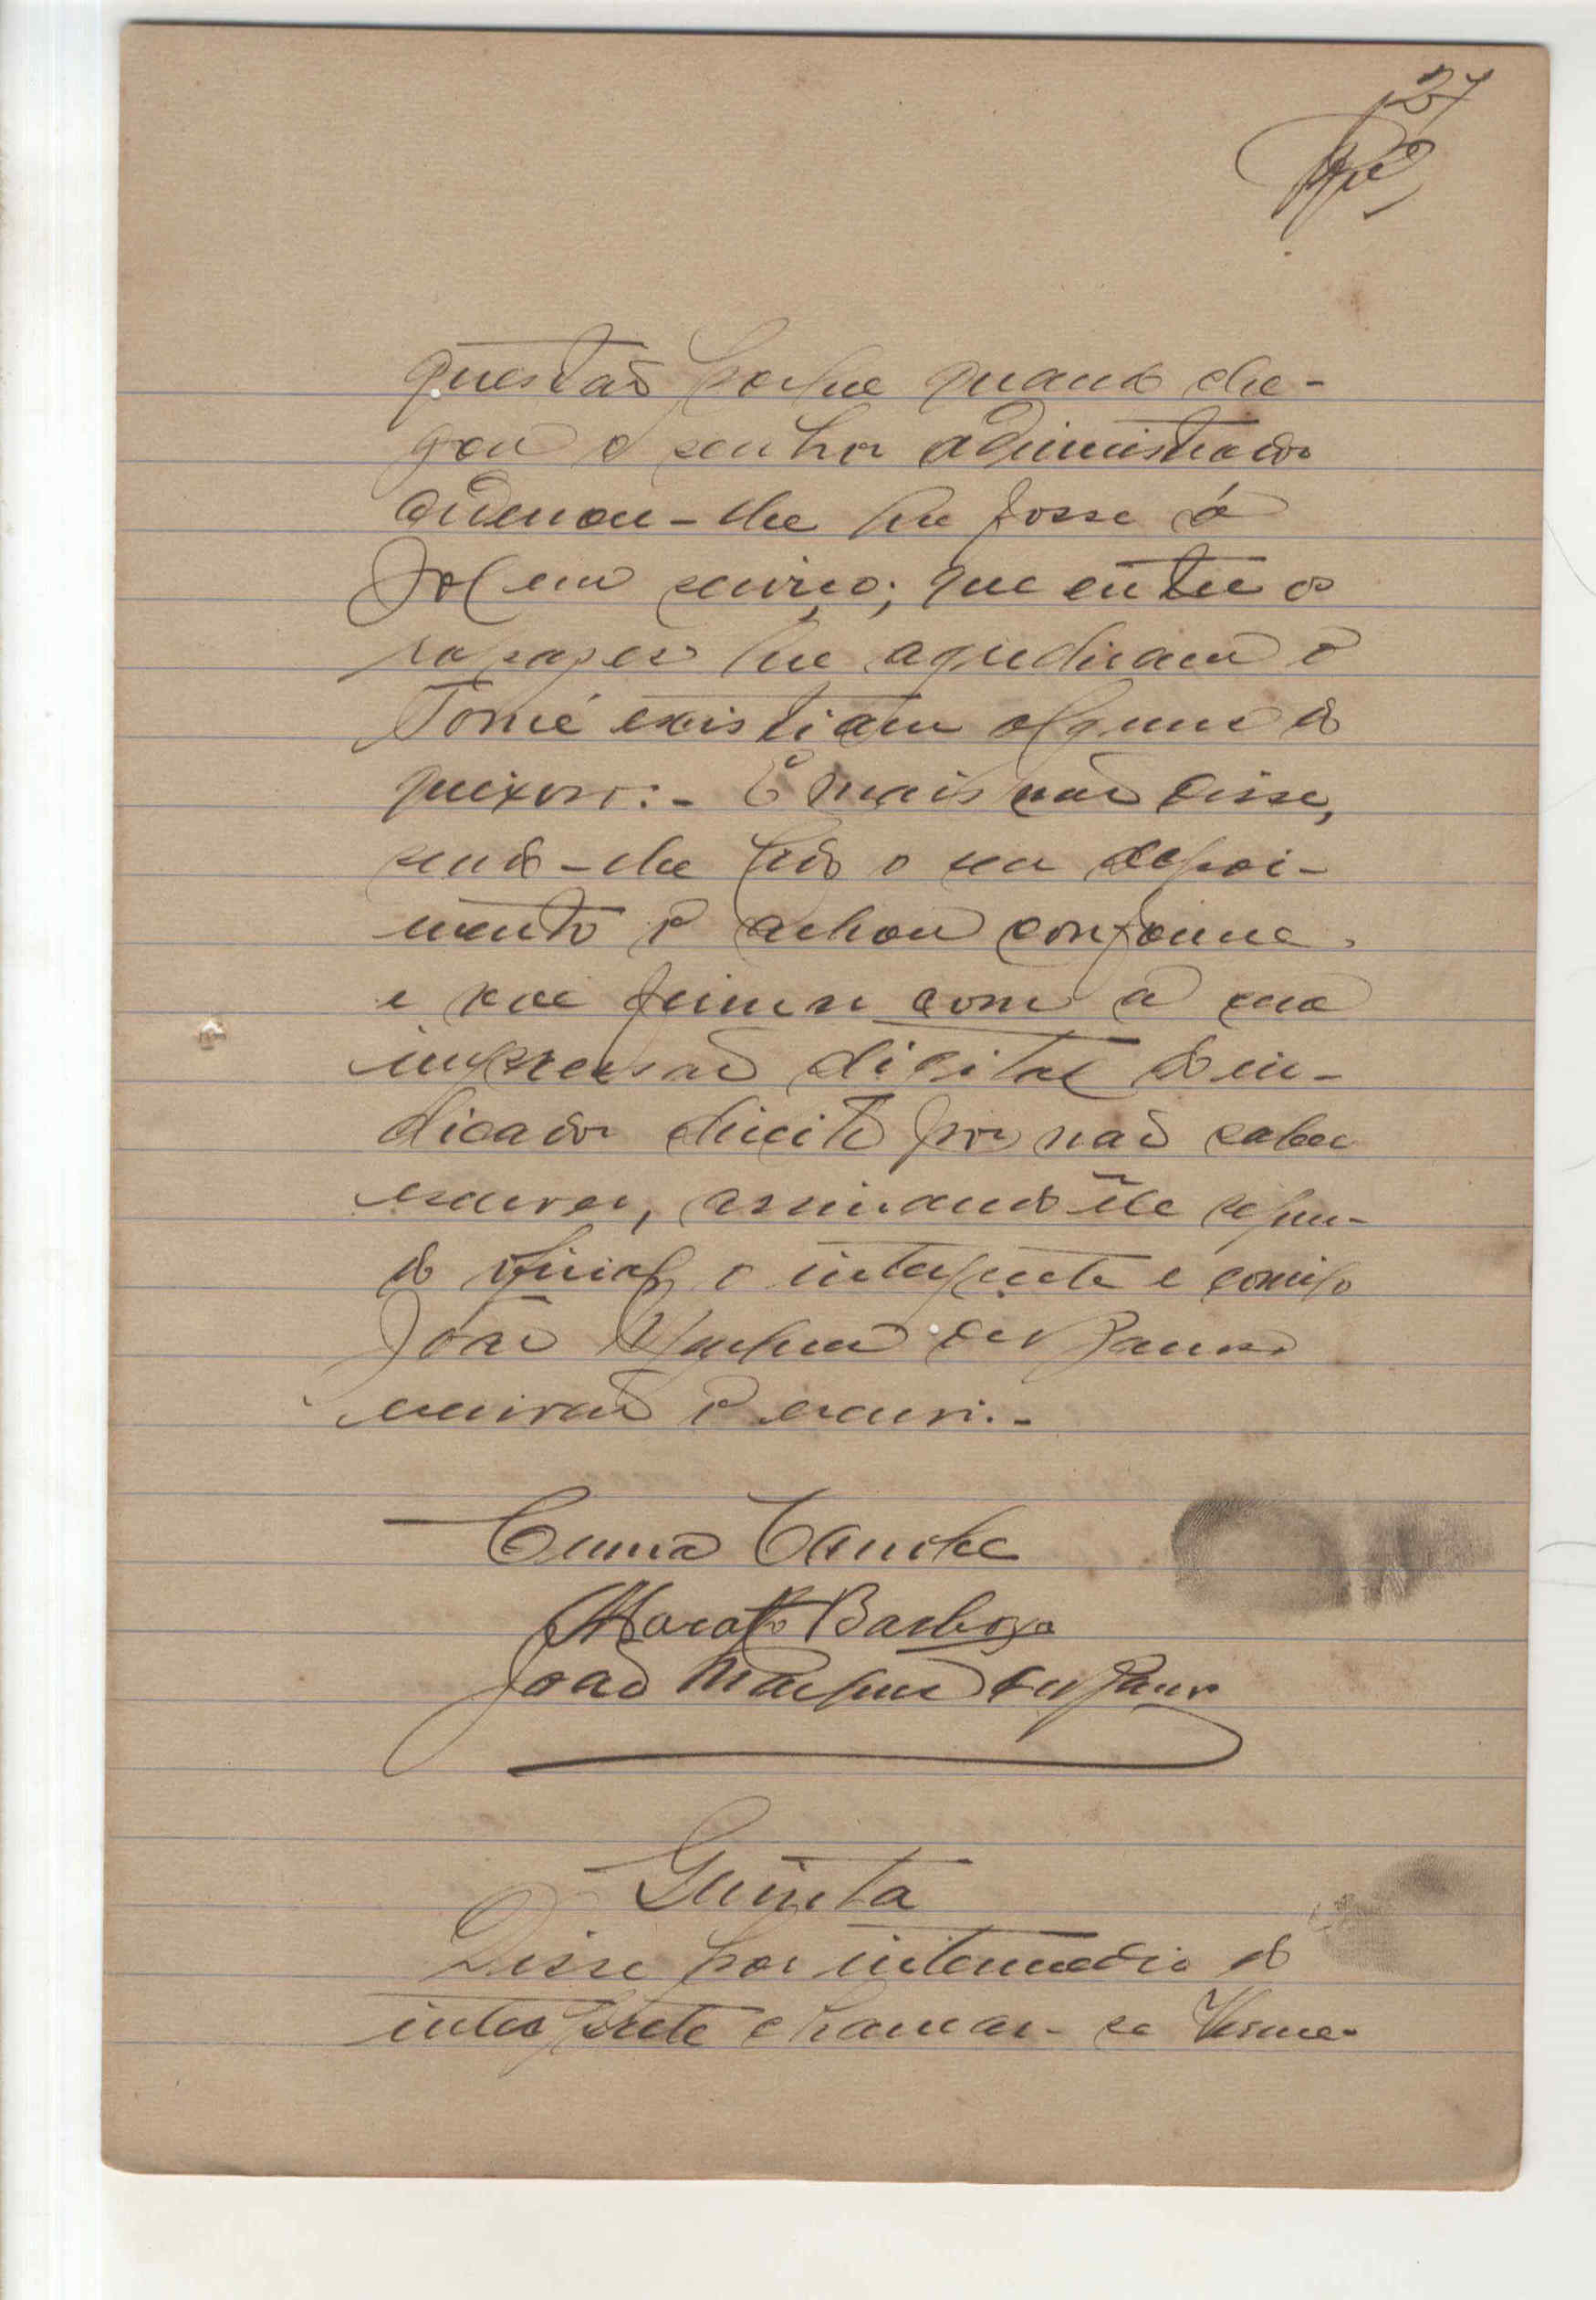 27
questão porque quando che-
gou o senhor administrador
ordenou-lhe que fosse á
em serviço; que entre os
rapazes que agrediram o
Tomé existiam alguns do
queixoso:- E mais não disse,
sendo-lhe lido o seu depoi-
mento o achou conforme,
e vai firmar com a sua
impressão digital do in-
dicador direito por não saber
escrever, assinando êle segun-
do oficial o interprete e comigo
João Marques
escrivão o escrevi.-
Barboza
João Marques
Quinta
Disse por intermedio do
interprete chamar-se